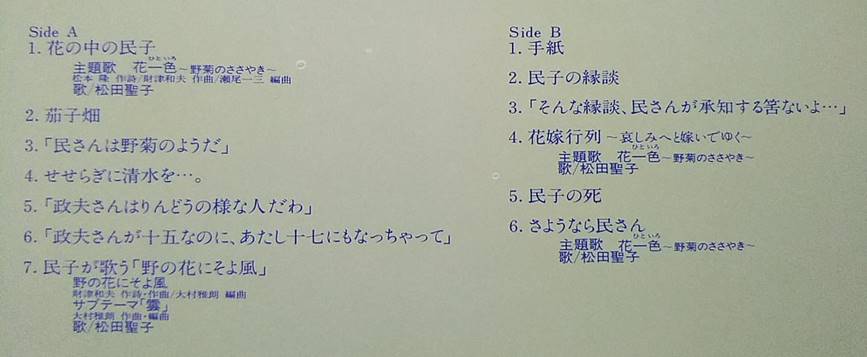 Side A
1. 花の中の民子
ひといろ
主題歌　花一色～野菊のささやき～
松本 隆 作詩/財津和夫 作曲/瀬尾一三 編曲
歌/松田聖子
2. 茄子畑
3.「民さんは野菊のようだ」
4. せせらぎに清水を…。
5.「政夫さんはりんどうの様な人だわ」
6.「政夫さんが十五なのに、あたし十七にもなっちゃって」
7. 民子が歌う「野の花にそよ風」
野の花にそよ風
財津和夫 作詩・作曲/大村雅朗 編曲
サブテーマ「雲」
大村雅朗 作曲・編曲
歌/松田聖子
Side B
1. 手紙
2. 民子の縁談
3.「そんな縁談、民さんが承知する筈ないよ…」
4. 花嫁行列 ～哀しみへと嫁いでゆく～
ひといろ
主題歌　花一色～野菊のささやき～
歌/松田聖子
5. 民子の死
6. さようなら民さん
ひといろ
主題歌　花一色～野菊のささやき～
歌/松田聖子